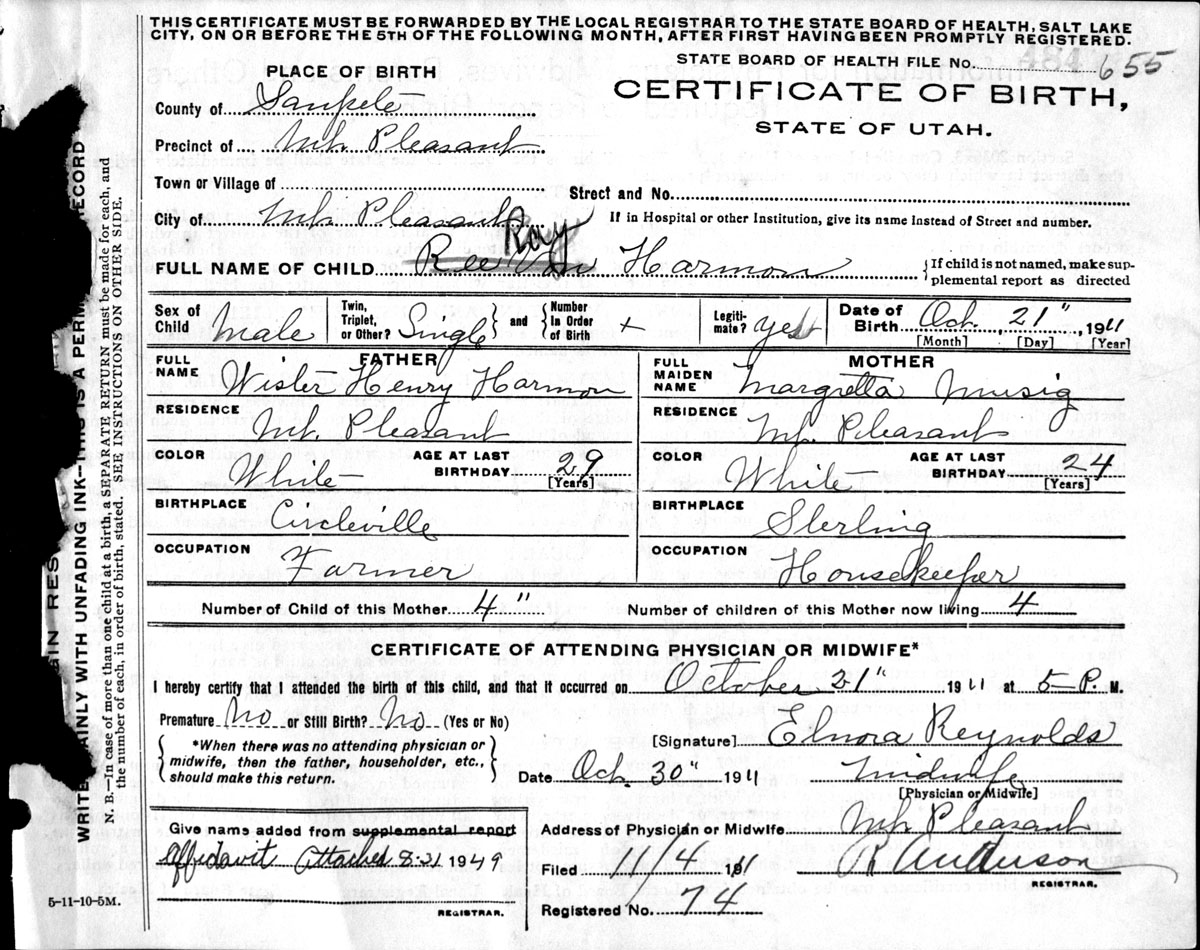 THIS CERTIFICATE MUST BE FORWARDED BY THE LOCAL REGISTRAR TO THE STATE BOARD OF HEALTH, SALT LAKE
CITY, ON OR BEFORE THE 5TH OF THE FOLLOWING MONTH, AFTER FIRST HAVING BEEN PROMPTLY REGISTERED.
STATE BOARD OF HEALTH FILE NO. 655
PLACE OF BIRTH
CERTIFICATE OF BIRTH,
STATE OF UTAH.
County of Sanpete
Precinct of Mt. Pleasant
Town or Village of
Street and No.
City of Mt. Pleasant
If in Hospital or other Institution, give its name instead of Street and number.
Ray
FULL NAME OF CHILD Ree Von Harmon
{If child is not named, make supplemental report as directed
Sex of Child Male
Twin, Triplet, or Other? Single
and
Number in Order of Birth +
Legitimate? yes
Date of Birth Oct. 21", 1911
[Month] [Day] [Year]
FATHER
FULL NAME Wister Henry Harmon
MOTHER
FULL MAIDEN NAME Margretta Musig
RESIDENCE Mt. Pleasant
RESIDENCE Mt. Pleasant
COLOR White AGE AT LAST BIRTHDAY 29 [Years]
COLOR White AGE AT LAST BIRTHDAY 24 [Years]
BIRTHPLACE Circleville
BIRTHPLACE Sterling
OCCUPATION Farmer
OCCUPATION Housekeeper
Number of Child of this Mother 4" Number of children of this Mother now living 4
CERTIFICATE OF ATTENDING PHYSICIAN OR MIDWIFE*
I hereby certify that I attended the birth of this child, and that it occurred on October 21" 1911 at 5 P. M.
Premature No or Still Birth? No (Yes or No)
*When there was no attending physician or
midwife, then the father, householder, etc.,
should make this return.
[Signature] Elnora Reynolds
Date Oct. 30" 1911 Midwife
[Physician or Midwife]
Give name added from supplemental report
affidavit Attached 8-21 1949
REGISTRAR.
5-11-10-5M.
Address of Physician or Midwife Mt. Pleasant
Filed 11/4 1911 Anderson
REGISTRAR.
Registered No. 74
WRITE PLAINLY WITH UNFADING INK—THIS IS A PERM RECORD
N. B.—In case of more than one child at a birth, a SEPARATE RETURN must be made for each, and
the number of each, in order of birth, stated. SEE INSTRUCTIONS ON OTHER SIDE.